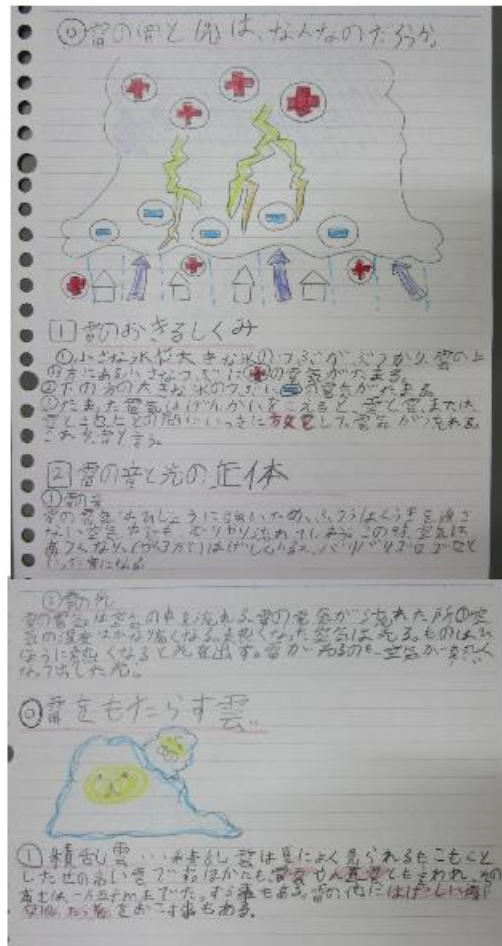 ◎雷の音と光は、なんなのだろうか。
1 雷のおきるしくみ
①小さな氷や大きな氷のつぶがぶつかり、雲の上
の方にある小さなつぶに+の電気がたまる。
②下の方の大きな氷のつぶに-の電気がたまる。
③たまった電気はげんかいをこえると、雲と雲、または、
雲と地上との間にいっきに放電して、電気が流れる。
これを雷と言う。
2 雷の音と光の正体
①雷の音
雷の電気はひじょうに強いため、ふつうは電気を通さ
ない空気中でも むりやり流れてしまう。この時、空気は
あつくなり、はげしくふるえ、バリバリゴロゴロなど
といった音になる
②雷の光
雷の電気は空気の中を流れる。雷の電気が流れた所の空
気の温度はかなり高くなる。熱くなった空気は光る。ものはひ
じょうに熱くなると光を出す。雷が光るのも、空気が熱く
なって出した光。
◎雷をもたらす雲。
① 積乱雲・・・積乱雲は夏によく見られるもこもこと
した せの高い雲で
ともいわれ、その
高さは、一万五千mまでたっする事もある。雷の他にはげしい雨
たつ巻をおこす事もある。